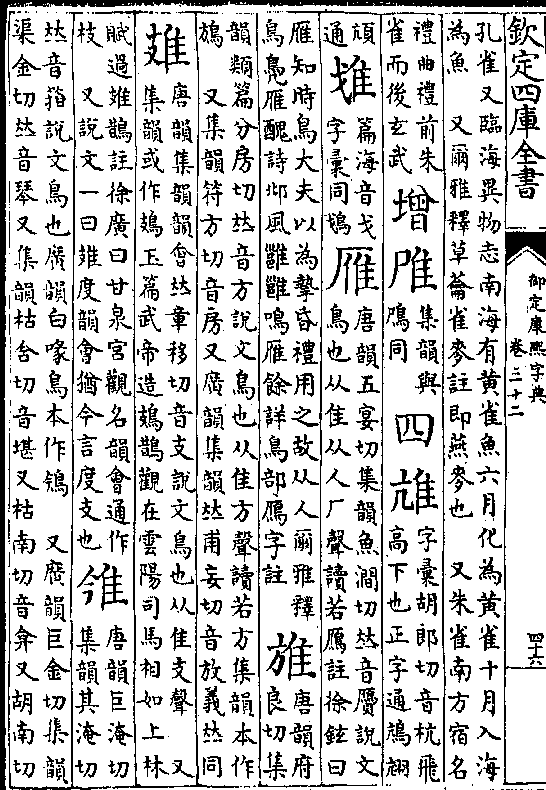 欽定四庫全書
御定康熙字典
卷三十二
四十六
孔雀又臨海異物志南海有黃雀魚六月化為黃雀十月入海
為魚　又爾雅釋草蘥雀麥註即燕麥也　又朱雀南方宿名
禮曲禮前朱
雀而後玄武
增
𨾔
集韻與
鳲同
四
䧚
字彙胡郎切音杭飛
高下也正字通鴆翃
頏
通
䧴
篇海音戈
字彙同鳷
雁
唐韻五宴切集韻魚澗切𠀤音贗說文
鳥也从隹从人厂聲讀若鴈註徐鉉曰
雁知時鳥大夫以為摯昏禮用之故从人爾雅釋
鳥鳧雁醜詩邶風雝雝鳴雁餘詳鳥部鴈字註
䲱
唐韻府
良切集
韻類篇分房切𠀤音方說文鳥也从隹方聲讀若方集韻本作
鴋　又集韻符方切音房又廣韻集韻𠀤甫妄切音放義𠀤同
䧴
唐韻集韻韻會𠀤章移切音支說文鳥也从隹支聲　又
集韻或作鳷玉篇武帝造鳷鵲觀在雲陽司馬相如上林
賦過䧴鵲註徐廣曰甘泉宮觀名韻會通作
枝　又說文一曰䧴度韻會猶今言度支也
雂
唐韻巨淹切
集韻其淹切
𠀤音箝說文鳥也廣韻白喙鳥本作鳹　又廣韻巨金切集韻
渠金切𠀤音琴又集韻枯含切音堪又枯南切音弇又胡南切